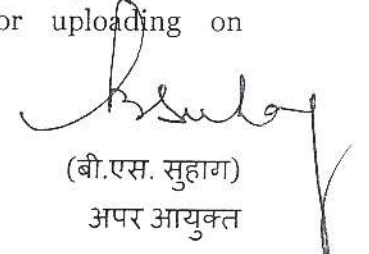 or uploading on
(बी.एस. सुहाग)
अपर आयुक्त